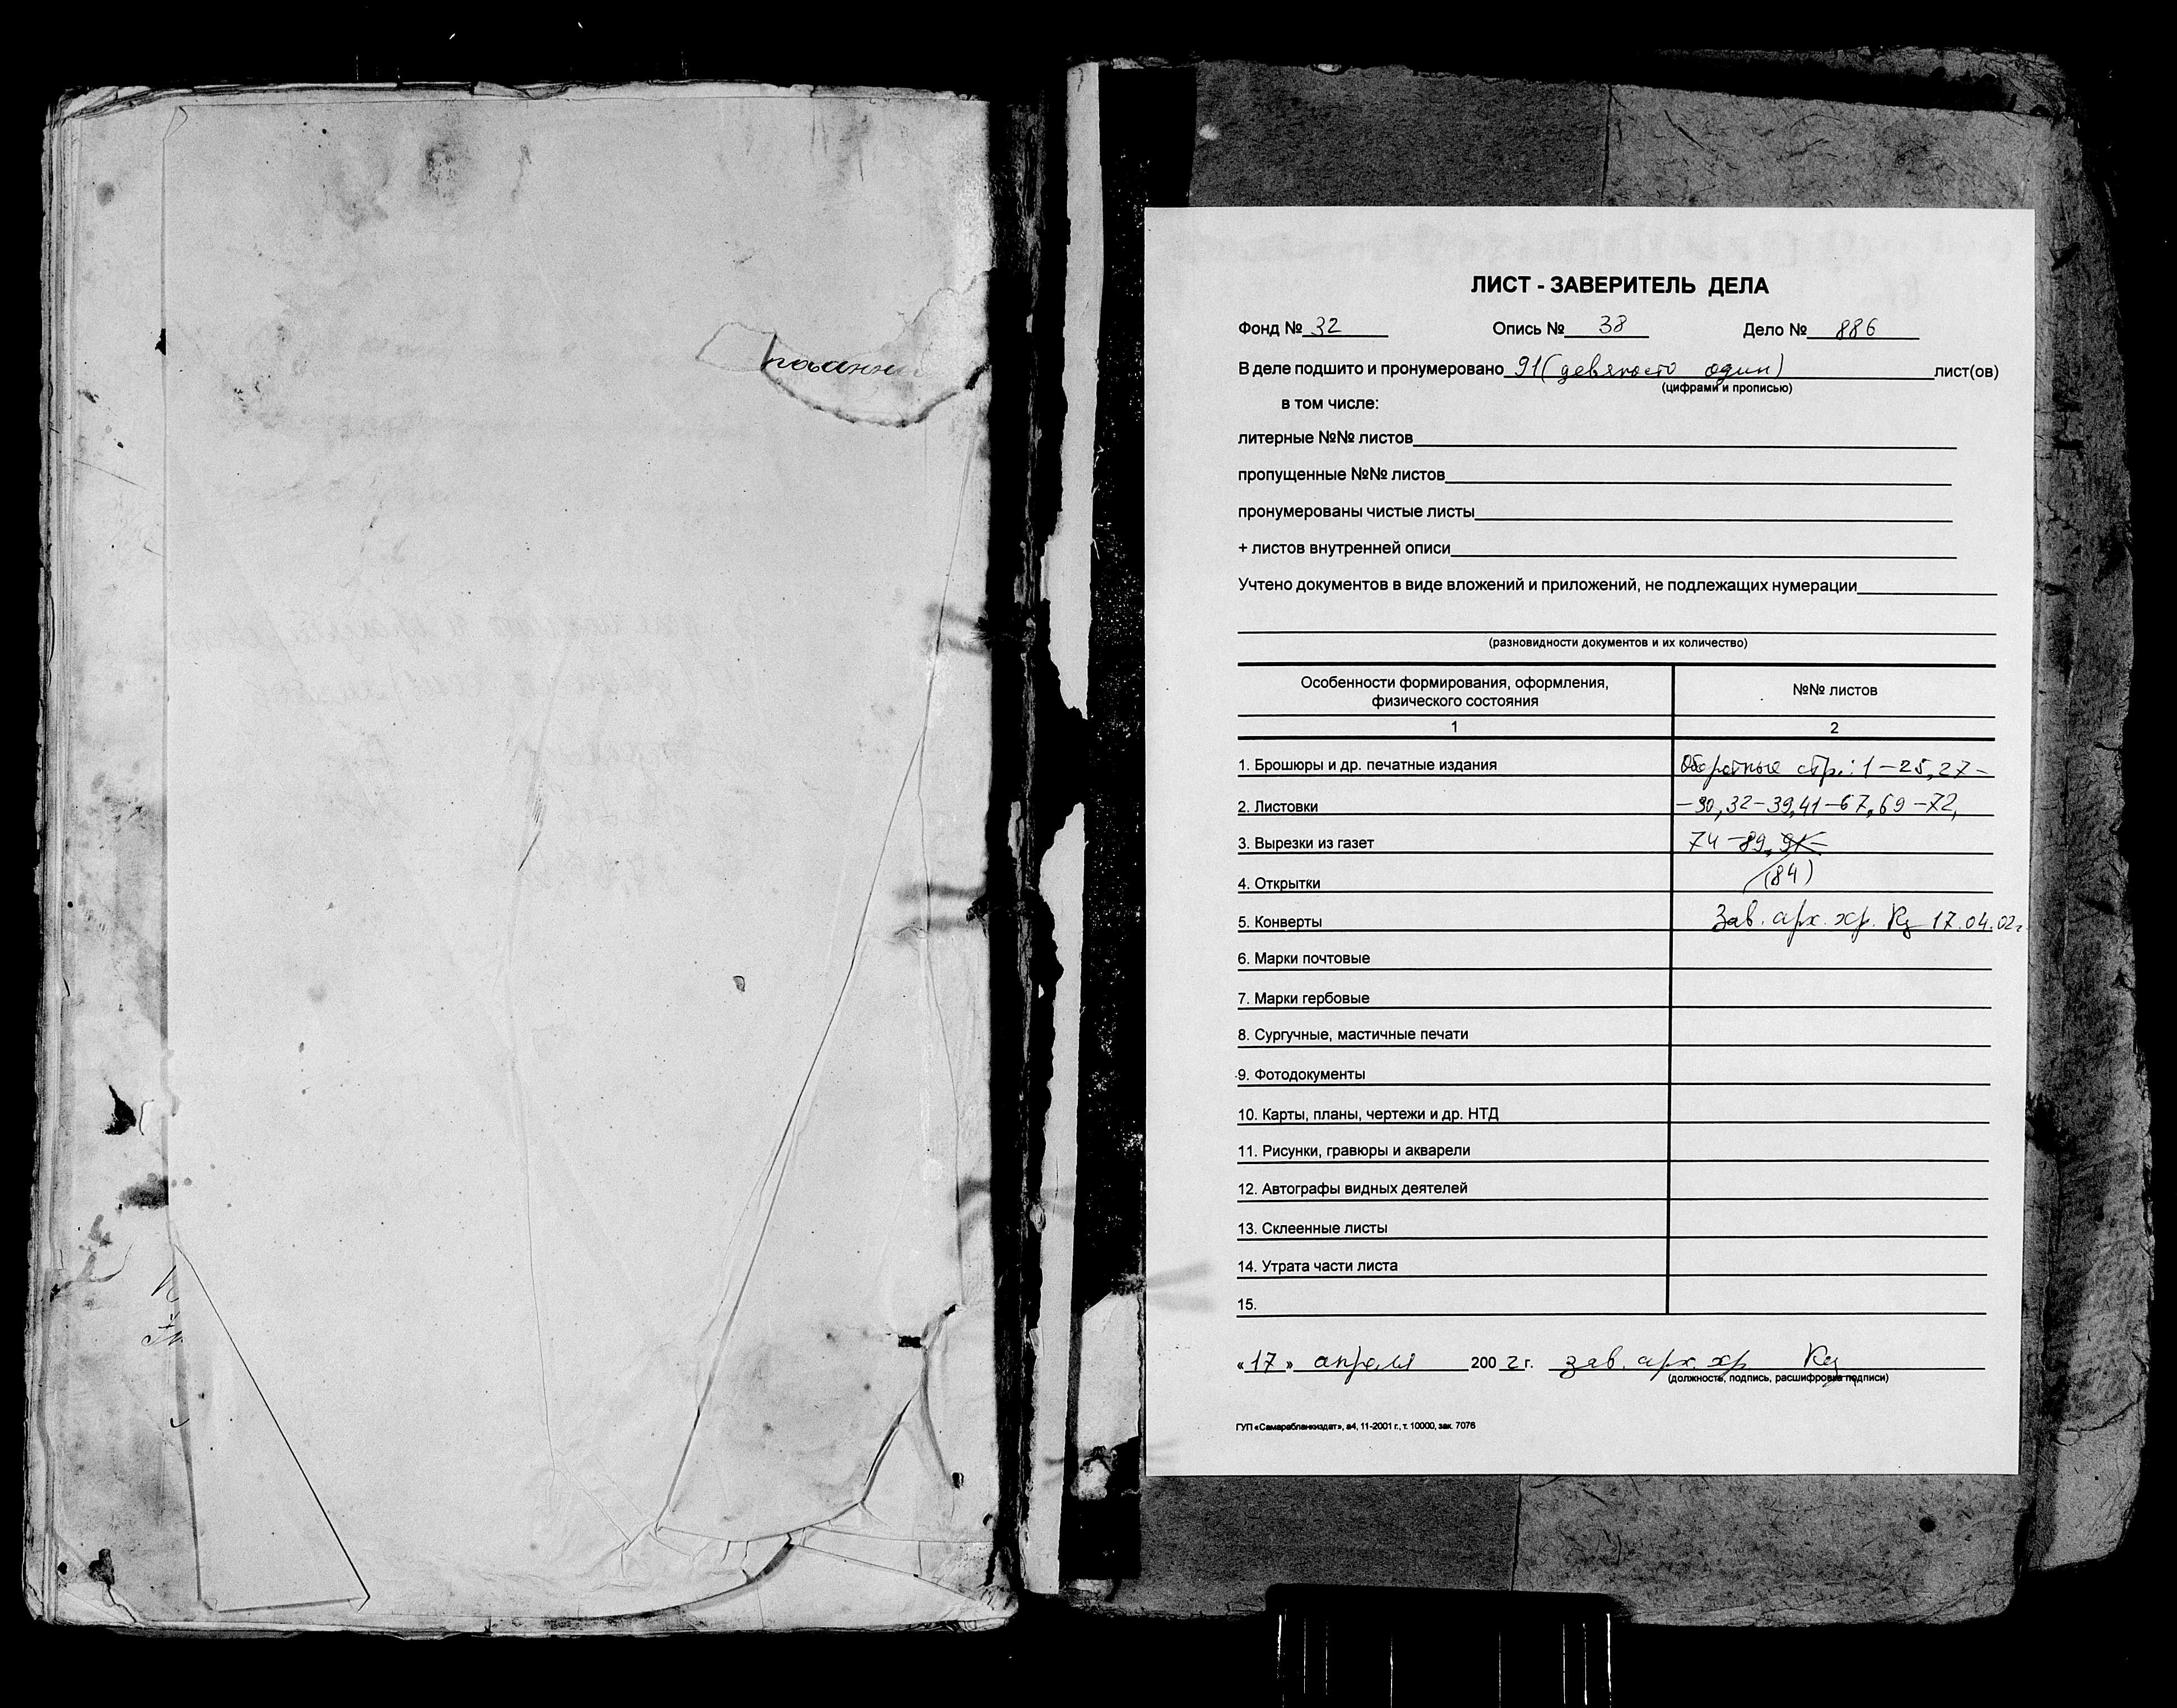 ЛИСТ - ЗАВЕРИТЕЛЬ ДЕЛА
Фонд № 32 Опись № 38 Дело № 886
В деле подшито и пронумеровано 91 (девяносто один) лист(ов)
(цифрами и прописью)
в том числе:
литерные №№ листов
пропущенные №№ листов
пронумерованы чистые листы
+ листов внутренней описи
Учтено документов в виде вложений и приложений, не подлежащих нумерации
(разновидности документов и их количество)
Особенности формирования, оформления, физического состояния №№ листов
1 2
1. Брошюры и др. печатные издания Оборотные стр.: 1-25, 27-
2. Листовки -30, 32-39, 41-67, 69-72,
3. Вырезки из газет 74-89,
4. Открытки (84)
5. Конверты Зав. арх. хр. 17.04.02г
6. Марки почтовые
7. Марки гербовые
8. Сургучные, мастичные печати
9. Фотодокументы
10. Карты, планы, чертежи и др. НТД
11. Рисунки, гравюры и акварели
12. Автографы видных деятелей
13. Склеенные листы
14. Утрата части листа
15.
«17» апреля 2002 г. зав. арх. хр.
(должность, подпись, расшифровка подписи)
ГУП «Самарабланкиздат», а4, 11-2001 г., т. 10000, зак. 7076